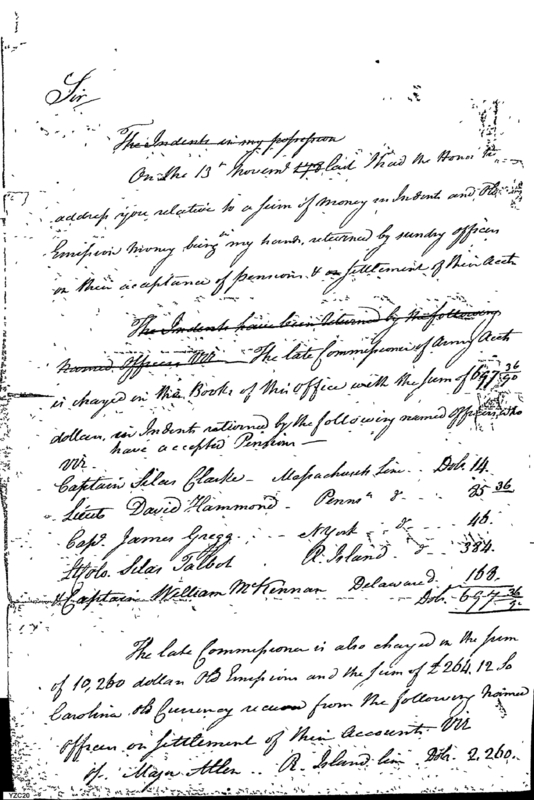 Sir
The Indents in my possession
On the 13th Novemr 178 last I had the Honor to
address you relative to a sum of money in Indents and Old
Emission money being in my hands, returned by sundry officers
on their acceptance of pensions & on settlement of their Accts
The Indents have been returned by the following
named Officers Viz The late Commissioner of Army Accts
is charged in the Books of this Office with the sum of 697 36/90
dollars, in Indents returned by the following named Officers who
have accepted Pensions —
Viz
Captain Silas Clarke - Massachusets Line - Dolr 14.
Lieut David Hammond - Pennsa do - - 85 36
Capt James Gregg - - NYork - do - - 46.
Lt Colo Silas Talbot R. Island do - 384.
& Captain William McKennan Delaware do 168.
Dolr 697 36/90
The late Commissioner is also charged in the sum
of 10,260 dollars Old Emissions and the sum of £264.12 So
Carolina Old Currency received from the following named
officers on settlement of their Accounts Viz
of Major Allen .. R. Island line Dolr 2,260.
YZC20